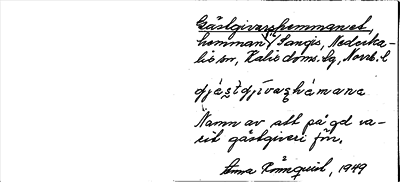 Gästgivarehemmanet,
hemman i Sangis, Nederka-
lix sn, Kalix doms. lg, Norrb. l
Namn av att på gd va-
rit gästgiveri förr.
Anna Rönnquist, 1949